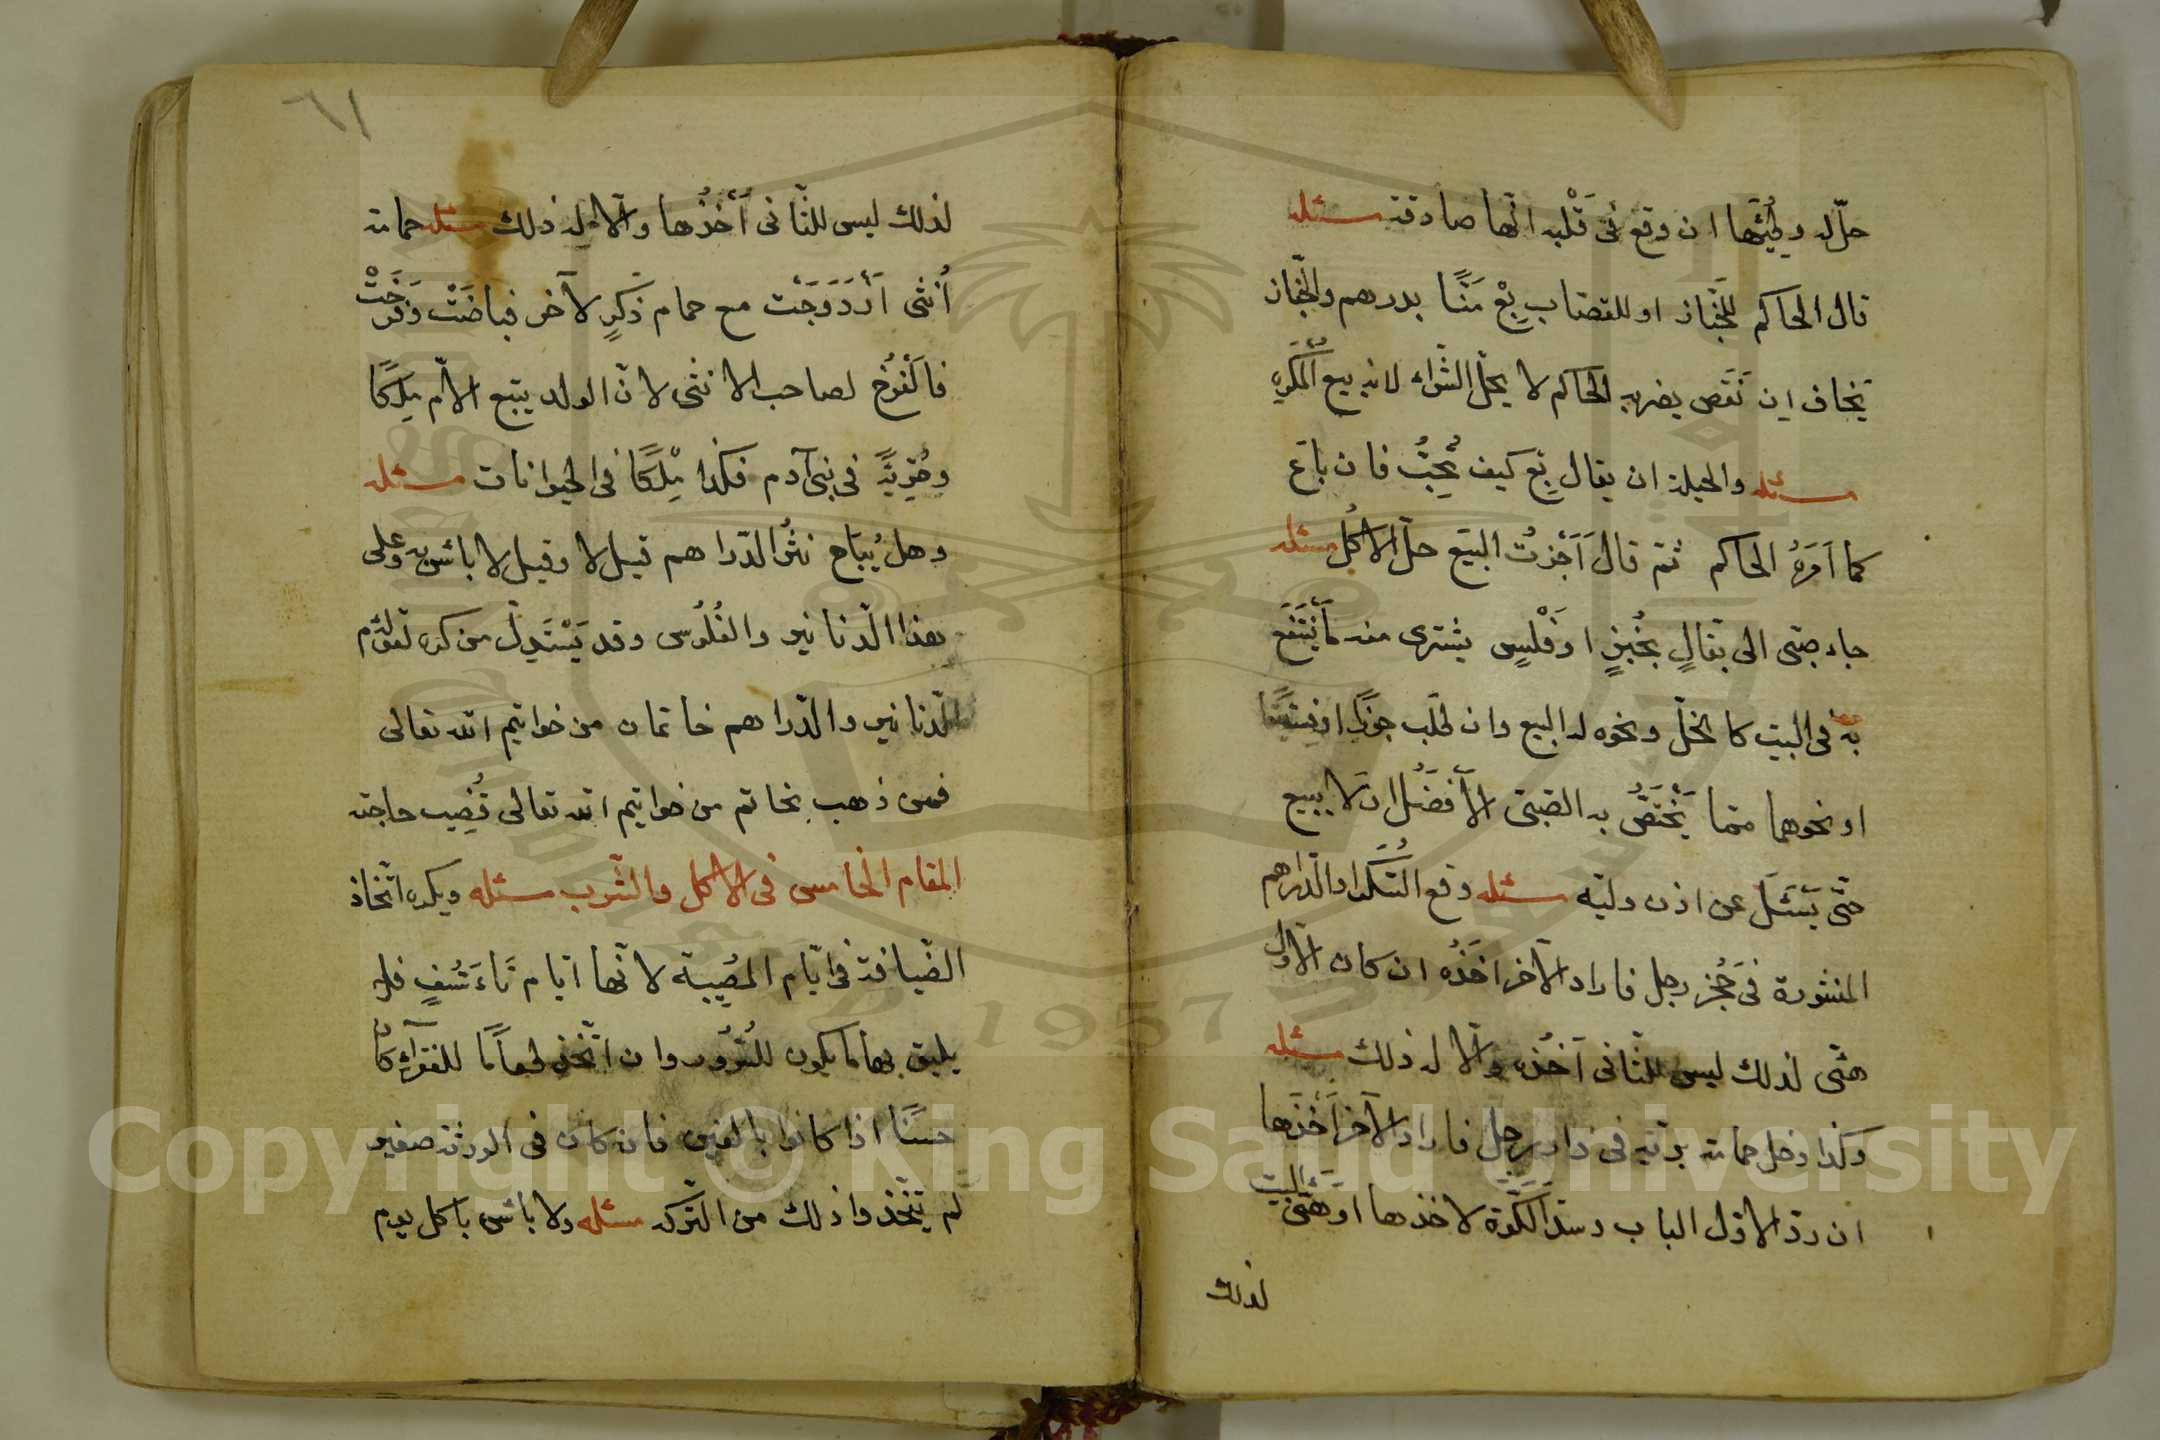 حلّ له وطيُها ان وقع فى قَلْبه انّها صادقة مسئله
قال الحاكم للخبّاز او للقصّاب بِعْ مَنًّا بدرهم والخبّاز
يخاف ان نَقَص يضربه الحاكم لا يحلّ الشّراء لانه بيع المُكْرَه
مسئله والحيلة ان يقال بِع كيف تُحِبُّ فان باع
كما اَمَرَهُ الحاكم ثمّ قال اَجَزْتُ البَيْع حلّ الاكْل مسئله
جاء صبّى الى بَقّالٍ بخُبْزٍ او فَلْسٍ يشترى منه ما يَنْتَفِع
به فى البيت كالخلّ ونحوه له البيع وان طلب جوزًا او فستقًا
او نحوهما ممّا يَخْتَصُّ به الصّبىّ الأفضَلُ ان لا يبيع
حتّى يَسْئَلَ عن اذن وليّه مسئله وقع السُّكَّر او الدّراهم
المنثورة فى حِجْر رجل فاراد الآخر اخْذَه ان كان الاوّل
هيّئ لذلك ليس للثّانى اَخْذُه والّا له ذلك مسئله
وكذا دخل حمامة برّيّة فى دار رجل فاراد الآخر اَخْذَها
ان ردّ الاوّل الباب وسدّ الكَوَّة لاخذها او هَيَّئ البيت
لذلك
٦١
لذلك ليس للثّانى اَخْذُها والّا له ذلك مسئله حمامة
اُنثى اَزْدَوَجَت مع حمام ذَكَرٍ لآخر فباضَتْ وفَرَخَتْ
فالفَرْخ لصاحب الانثى لانّ الولد يتبع الامّ مِلْكًا
وحُرّيّةً فى بنى آدم فكذا مِلْكًا فى الحيوانات مسئله
وهل يُبَاح نثْرُ الدّراهم قيل لا وقيل لا بأس به وعلى
هذا الدّنانير والفُلُوس وقد يَسْتَدِلّ من كره لقولهم
الدّنانير والدّراهم خاتمان من خواتيم الله تعالى
فمن ذهب بخاتم من خواتيم الله تعالى قُضِيَت حاجته
المقام الخامس فى الاكل والشّرب مسئله ويكره اتّخاذ
الضّيافة فى ايّام المصيبة لانّها ايّام تَاَسُّفٍ فلا
يليق بها ما يكون للسُّرُور وان اتّخذ طعامًا للفقراء كان
حسنًا اذا كانوا بالغين فان كان فى الورثة صغير
لم يتّخذوا ذلك من التّركة مسئله ولا بأس باكل يوم
1957
Copyright © King Saud University